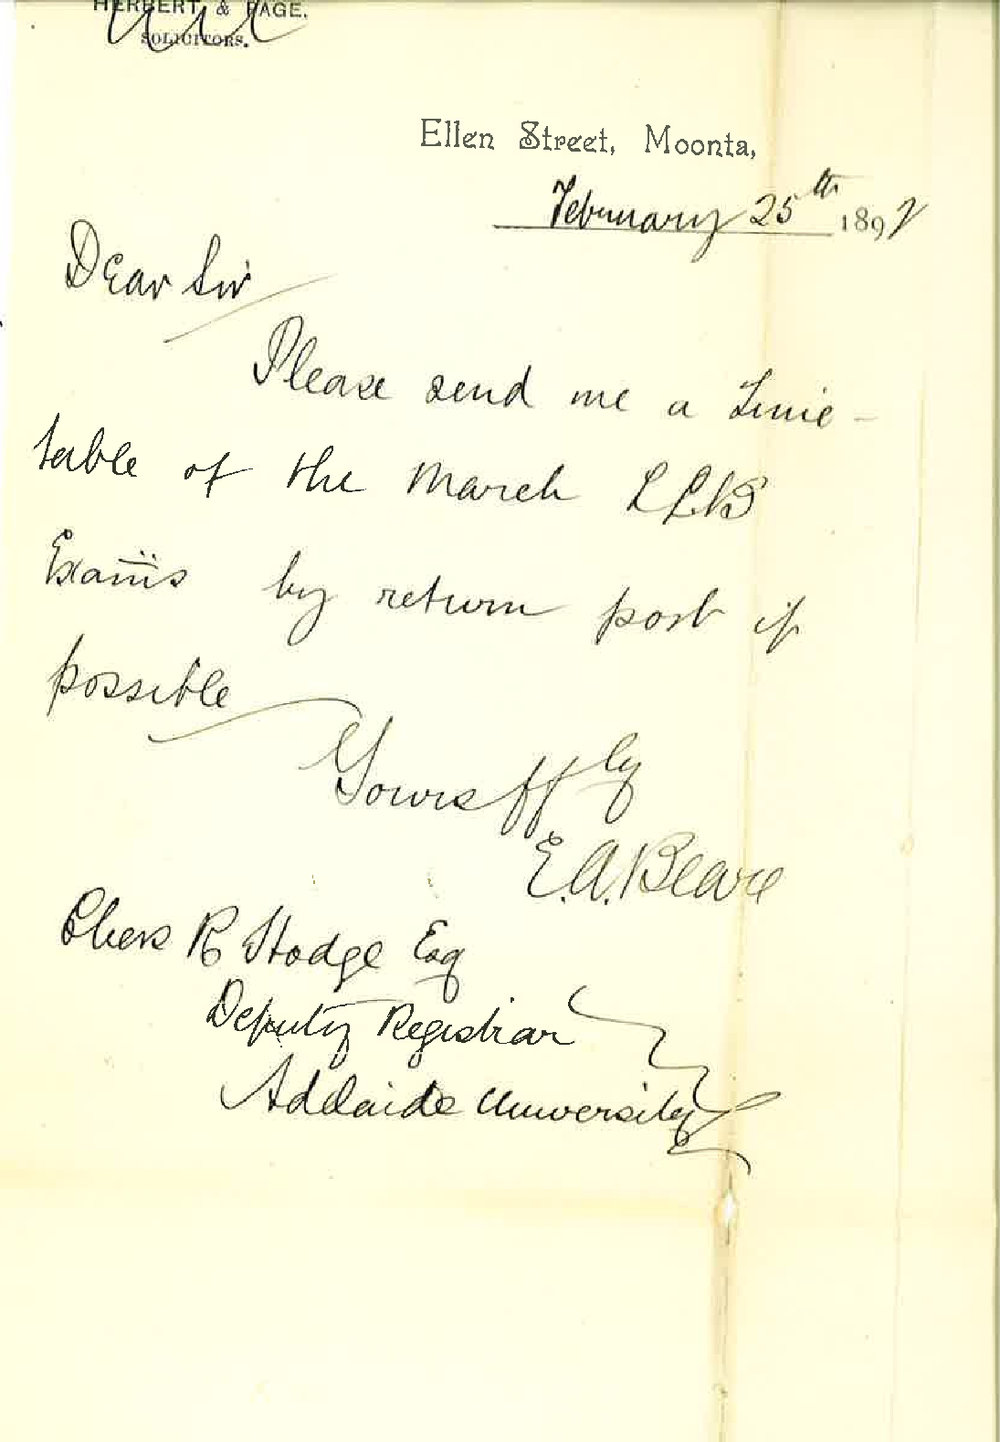 HERBERT & PAGE,
SOLICITORS.
Ellen Street, Moonta,
February 25th 1897
Dear Sir
Please send me a Time-
table of the March LLB
Exams by return post if
possible
Yours ffly
E.A. Beare
Chas R Hodge Esq
Deputy Registrar
Adelaide University